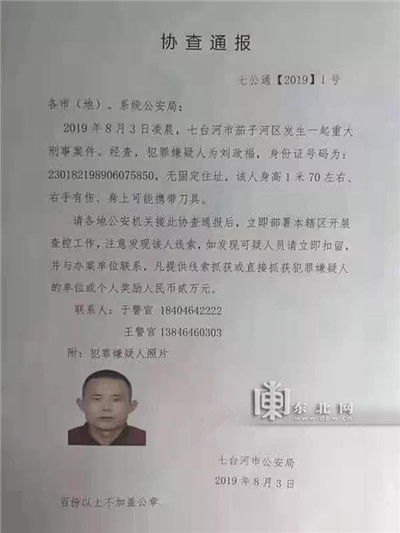 协查通报
七公通【2019】1号
各市（地）、系统公安局：
2019年8月3日凌晨，七台河市茄子河区发生一起重大
刑事案件。经查，犯罪嫌疑人为刘政福，身份证号码为：
230182198906075850，无固定住址，该人身高1米70左右、
右手有伤、身上可能携带刀具。
请各地公安机关接此协查通报后，立即部署本辖区开展
查控工作，注意发现该人线索，如发现可疑人员请立即扣留，
并与办案单位联系，凡提供线索抓获或直接抓获犯罪嫌疑人
的单位或个人奖励人民币贰万元。
联系人：于警官 18404642222
王警官 13846460303
附：犯罪嫌疑人照片
东北网
www.dbw.cn
七台河市公安局
2019年8月3日
百份以上不加盖公章